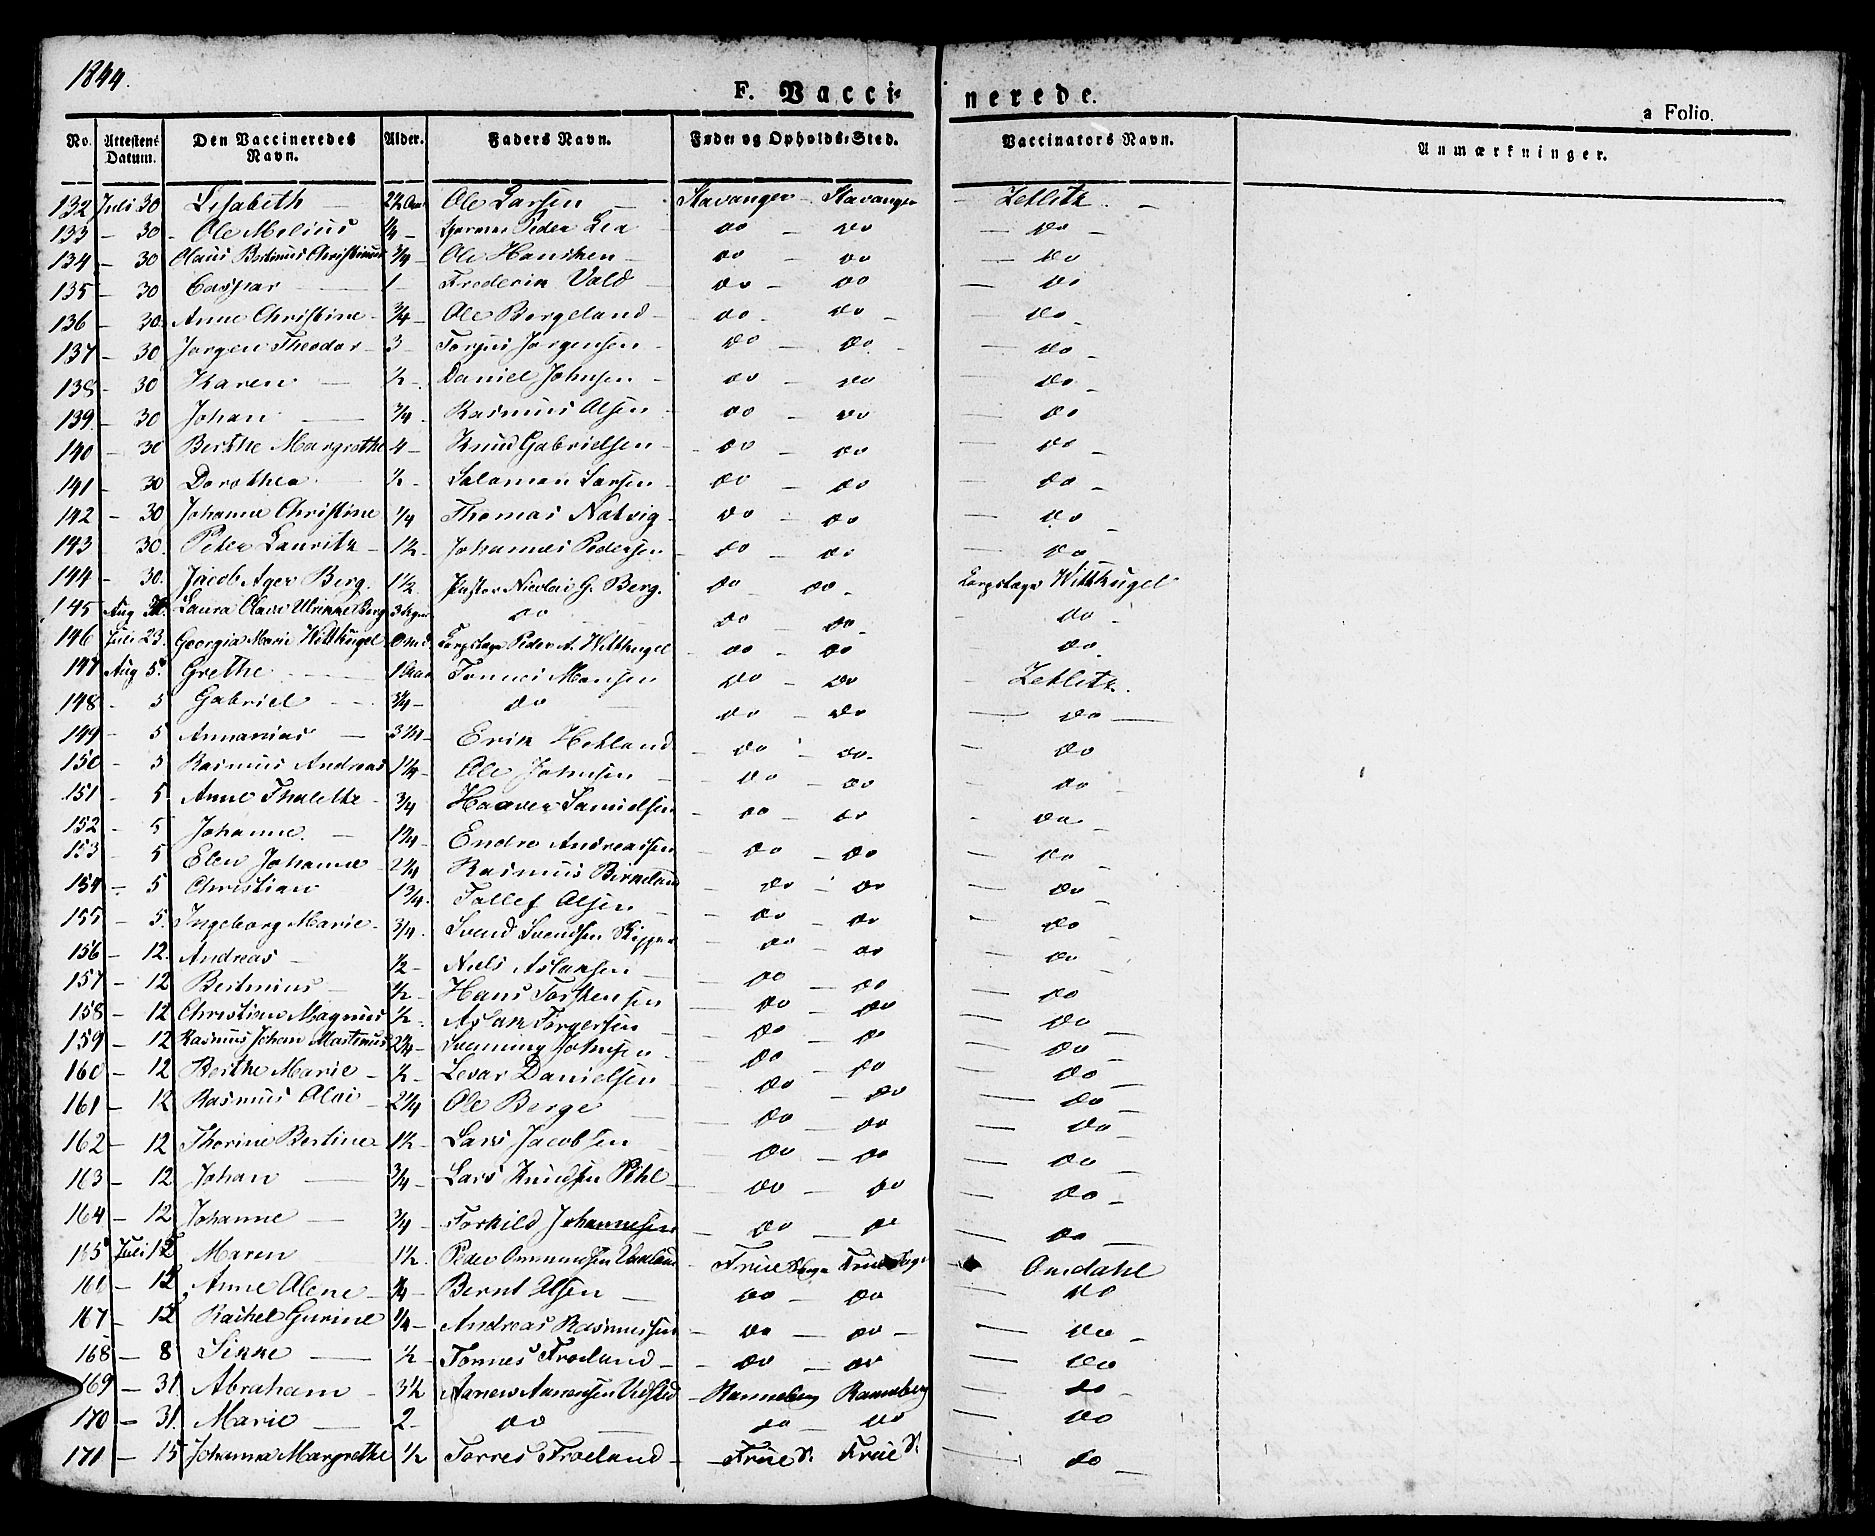 1844.
F. Vacci- nerede.
a Folio.
No. Attestens Datum. Den Vaccineredes Navn. Alder. Faders Navn. Føde- og Opholds-Sted. Vaccinators Navn. Anmærkninger.
132 Juli 30 Lisabeth — Ole Larsen — Stavanger Stavanger — Zetlitz
133 — 30 - Ole Melius ¼ — Peder Lea do — do — do —
134 — 30 Olaus Bertinus Christinius ¾ — Ole Hansken — do do — do
135 — 30 Caspar — 1 — Frederik Vald — do — do — do
136 — 30 Anne Christine — ¾ — Ole Borgeland — do — do — — do —
137 — 30 Jørgen Theodor — 3 — Torjus Jørgensen — do — do — do —
138 — 30 Karen — ½ — Daniel Johnsen — do — do — do —
139 — 30 Johan — ¾ — Rasmus Olsen — do — do — do
140 — 30 Berthe Margrethe 4 — Knud Gabrielsen — do — do — do —
141 — 30 Dorothea — ½ — Salamon Larsen — do — do — do —
142 — 30 Johanne Christine ¼ Thomas Natvig — do — do — do —
143 — 30. Peter Lauritz — 1½ — Johannes Pedersen — do — do — do
144 — 30. Jacob Ager Berg. 1½ Pastor Nicolai G. Berg. do — do — Corpslæge Witthugel
145 Aug Laura Claire Ulrikke Berg do do — do — do
146 Juli 23. Georgia Marie Witthugel Corpslæge Peder A. Witthugel do — do do
147 Aug 5. Grethe — 1 Aar Tonnes Monsen do — do — Zetlitz.
148 — 5 Gabriel — ¾ — do — do — do — do —
149 — 5 Annanias — 3¼ — Erik Hetland — do — do — do
150 — 5 Rasmus Andreas 1¼ — Ole Johnsen — do — do — do —
151 — 5 Anne Thalette — ¾ Haaver Samuelsen — do — do — do —
152 — 5 Johanne. — 1¼ — Endre Andreassen — do — do — do —
153 — 5 Elen Johanne 2¼ Rasmus Birkeland — do — do — do —
154 — 5 Christian 1¾ Tollef Olsen — do — do — do —
155 — 5. Ingeborg Marie — ¾ Svend Svendsen Skipper do — do — do —
156 — 12. Andreas — ½ — Niels Aslaksen — do — do — do —
157 — 12 Bertinius — ½ — Hans Torkensen do — do — do
158 — 12 Christian Magnus ½ — Aslak Torgersen — do — do — do —
159 — 12 Rasmus Johan Martinus 2¼ — Svenning Johnsen — do — do — do —
160 — 12 Berthe Marie — ½ — Levar Danielsen — do — do — do —
161 — 12 Rasmus Olai — 2¼ Ole Berge — do — do — do —
162 — 12 Thorine Bertine 1½ — Lars Jacobsen — do — do — do —
163 — 12 Johan — ¾ — Lars Knudsen Pihl — do — do — do —
164 — 12 Johanne — ¾ — Torkild Johannesen do — do — do —
165 Juli 12 Maren 1½ Peder — Frue Sogn Frue Sogn — Omdahl
166 — 12 Anne Olene — ¼ — Bernt Olsen — do — do — do
167 — 12 Rachel Gurine ¼ — Andreas Rasmussen — do — do — — do —
168 — 8 Sikke — ½ — Tonnes Froeland — do — do — do
169 — 31 Abraham — 3½ — Ranneberg Ranneberg — do —
170 — 31. Marie — 2 — do — do do — do
171 — 15 Johanna Margrethe ½ Torres Froeland — Frue S. Frue S. — do —